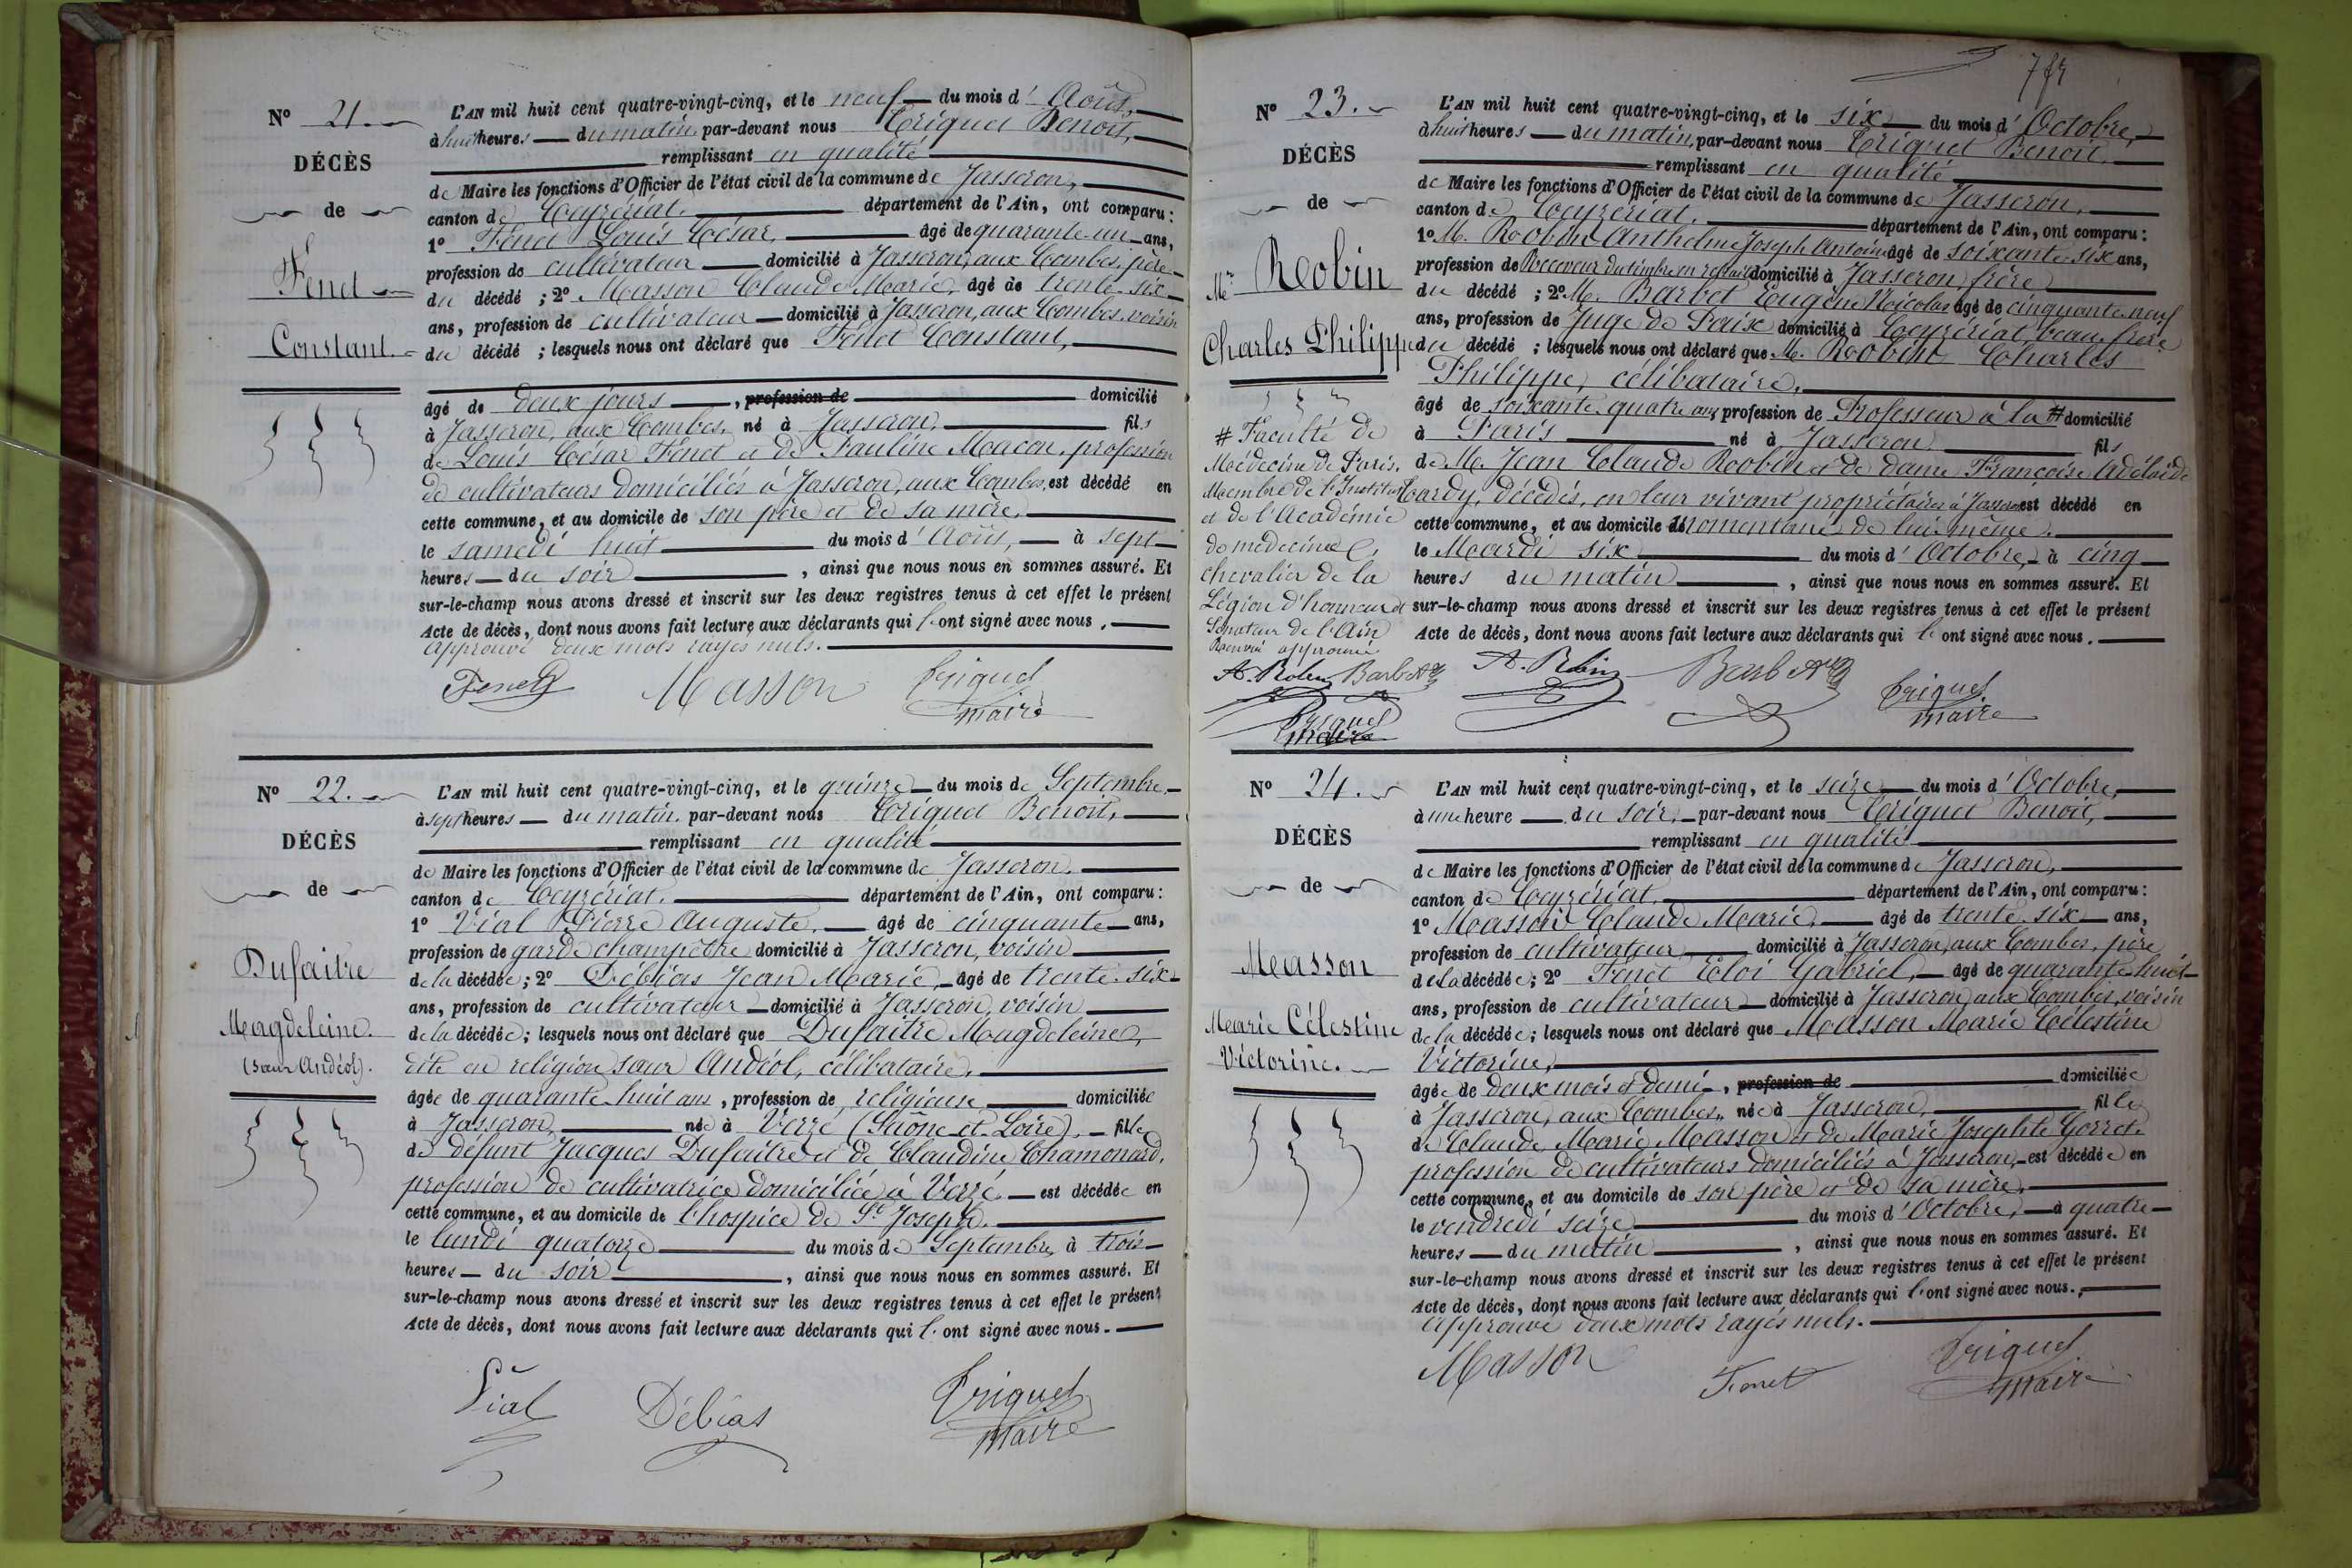 N° 21.
DÉCÈS
de
Fénet
Constant.
L'AN mil huit cent quatre-vingt-cinq, et le neuf du mois d'Août,
à huit heures du matin, par-devant nous Triquet Benoit,
remplissant en qualité
de Maire les fonctions d'Officier de l'état civil de la commune de Jasseron,
canton de Ceyzériat, département de l'Ain, ont comparu :
1° Fénet Louis César, âgé de quarante-un ans,
profession de cultivateur domicilié à Jasseron, aux Combes, père
du décédé ; 2° Masson Claude Marie, âgé de trente-six
ans, profession de cultivateur domicilié à Jasseron, aux Combes, voisin
du décédé ; lesquels nous ont déclaré que Fénet Constant,
âgé de deux jours, profession de domicilié
à Jasseron, aux Combes, né à Jasseron, fils
de Louis César Fénet et de Pauline Macon, profession
de cultivateurs domiciliés à Jasseron, aux Combes, est décédé en
cette commune, et au domicile de son père et de sa mère,
le samedi huit du mois d'Août, à sept
heures du soir, ainsi que nous nous en sommes assuré. Et
sur-le-champ nous avons dressé et inscrit sur les deux registres tenus à cet effet le présent
Acte de décès, dont nous avons fait lecture aux déclarants qui l'ont signé avec nous.
Approuvé deux mots rayés nuls.
Fenet Masson Triquet
maire
N° 22.
DÉCÈS
de
Dufaitre
Magdeleine.
(sœur Andéol).
L'AN mil huit cent quatre-vingt-cinq, et le quinze du mois de Septembre,
à sept heures du matin, par-devant nous Triquet Benoit,
remplissant en qualité
de Maire les fonctions d'Officier de l'état civil de la commune de Jasseron,
canton de Ceyzériat, département de l'Ain, ont comparu :
1° Vial Pierre Auguste, âgé de cinquante ans,
profession de garde champêtre domicilié à Jasseron, voisin
de la décédée ; 2° Débias Jean Marie, âgé de trente-six
ans, profession de cultivateur domicilié à Jasseron, voisin
de la décédée ; lesquels nous ont déclaré que Dufaitre Magdeleine,
dite en religion sœur Andéol, célibataire,
âgée de quarante-huit ans, profession de religieuse domiciliée
à Jasseron, née à Verzé (Saône-et-Loire), fille
de défunt Jacques Dufaitre et de Claudine Chamonard,
profession de cultivatrice domiciliée à Verzé, est décédée en
cette commune, et au domicile de l'hospice de St Joseph,
le lundi quatorze du mois de Septembre, à trois
heures du soir, ainsi que nous nous en sommes assuré. Et
sur-le-champ nous avons dressé et inscrit sur les deux registres tenus à cet effet le présent
Acte de décès, dont nous avons fait lecture aux déclarants qui l'ont signé avec nous.
Vial Débias Triquet
Maire
N° 23.
DÉCÈS
de
Mr Robin
Charles Philippe
L'AN mil huit cent quatre-vingt-cinq, et le six du mois d'Octobre,
à huit heures du matin, par-devant nous Triquet Benoit,
remplissant en qualité
de Maire les fonctions d'Officier de l'état civil de la commune de Jasseron,
canton de Ceyzériat, département de l'Ain, ont comparu :
1° M. Robin Anthelme Joseph Antoine âgé de soixante-six ans,
profession de Receveur du timbre en retraite domicilié à Jasseron, frère
du décédé ; 2° M. Barbet Eugène Nicolas âgé de cinquante-neuf
ans, profession de Juge de Paix domicilié à Ceyzériat, beau-frère
du décédé ; lesquels nous ont déclaré que M. Robin Charles
Philippe, célibataire,
âgé de soixante-quatre ans, profession de Professeur à la # domicilié
à Paris né à Jasseron fils
de M. Jean Claude Robin et de dame Françoise Adélaïde
Tardy, décédés, en leur vivant propriétaires à Jasseron est décédé en
cette commune, et au domicile momentané de lui-même,
le Mardi six du mois d'Octobre, à cinq
heures du matin, ainsi que nous nous en sommes assuré. Et
sur-le-champ nous avons dressé et inscrit sur les deux registres tenus à cet effet le présent
Acte de décès, dont nous avons fait lecture aux déclarants qui l'ont signé avec nous.
# Faculté de
Médecine de Paris,
Membre de l'Institut
et de l'Académie
de médecine,
chevalier de la
Légion d'honneur et
Sénateur de l'Ain
Renvoi approuvé
A. Robin Barbet
Triquet
maire
A. Robin Barbet Triquet
maire
N° 24.
DÉCÈS
de
Masson
Marie Célestine
Victorine.
L'AN mil huit cent quatre-vingt-cinq, et le seize du mois d'Octobre,
à une heure du soir, par-devant nous Triquet Benoit,
remplissant en qualité
de Maire les fonctions d'Officier de l'état civil de la commune de Jasseron,
canton de Ceyzériat, département de l'Ain, ont comparu :
1° Masson Claude Marie, âgé de trente-six ans,
profession de cultivateur domicilié à Jasseron, aux Combes, père
de la décédée ; 2° Fénet Eloi Gabriel, âgé de quarante-huit
ans, profession de cultivateur domicilié à Jasseron, aux Combes, voisin
de la décédée ; lesquels nous ont déclaré que Masson Marie Célestine
Victorine,
âgée de deux mois et demi, profession de domiciliée
à Jasseron, aux Combes, née à Jasseron, fille
de Claude Marie Masson et de Marie Josephte Gorret,
profession de cultivateurs domiciliés à Jasseron, est décédée en
cette commune, et au domicile de son père et de sa mère,
le vendredi seize du mois d'Octobre, à quatre
heures du matin, ainsi que nous nous en sommes assuré. Et
sur-le-champ nous avons dressé et inscrit sur les deux registres tenus à cet effet le présent
Acte de décès, dont nous avons fait lecture aux déclarants qui l'ont signé avec nous.
Approuvé deux mots rayés nuls.
Masson Fenet Triquet
maire